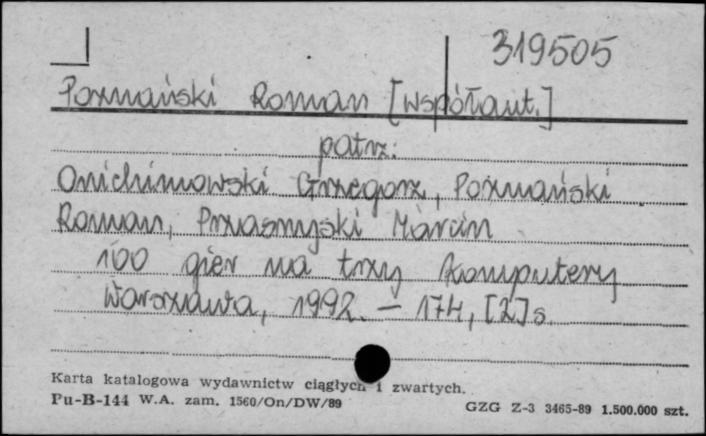 319505
Poznański Roman [współaut.]
patrz:
Onichimowski Grzegorz, Poznański
Roman, Przasnyski Marcin
100 gier na trzy komputery
Warszawa, 1992. – 174, [2] s.
Karta katalogowa wydawnictw ciągłych i zwartych.
Pu-B-144 W.A. zam. 1560/On/DW/89
GZG Z-3 3465-89 1.500.000 szt.